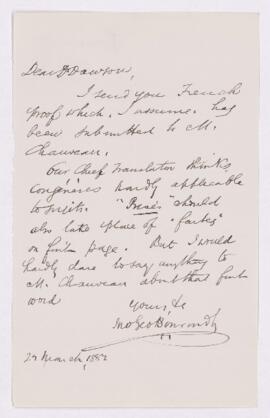 Dear Dr Dawson,
I send you French
proof which, I assume, has
been submitted to M.
Chauveau.
Our Chief Translator thinks
congénères hardly applicable
to sujets. "Beaux" should
also take place of
on first page. But I would
hardly dare to say anything to
M. Chauveau about that first
word
Yours &c
Jno Geo Bourinot
29 March, 1882